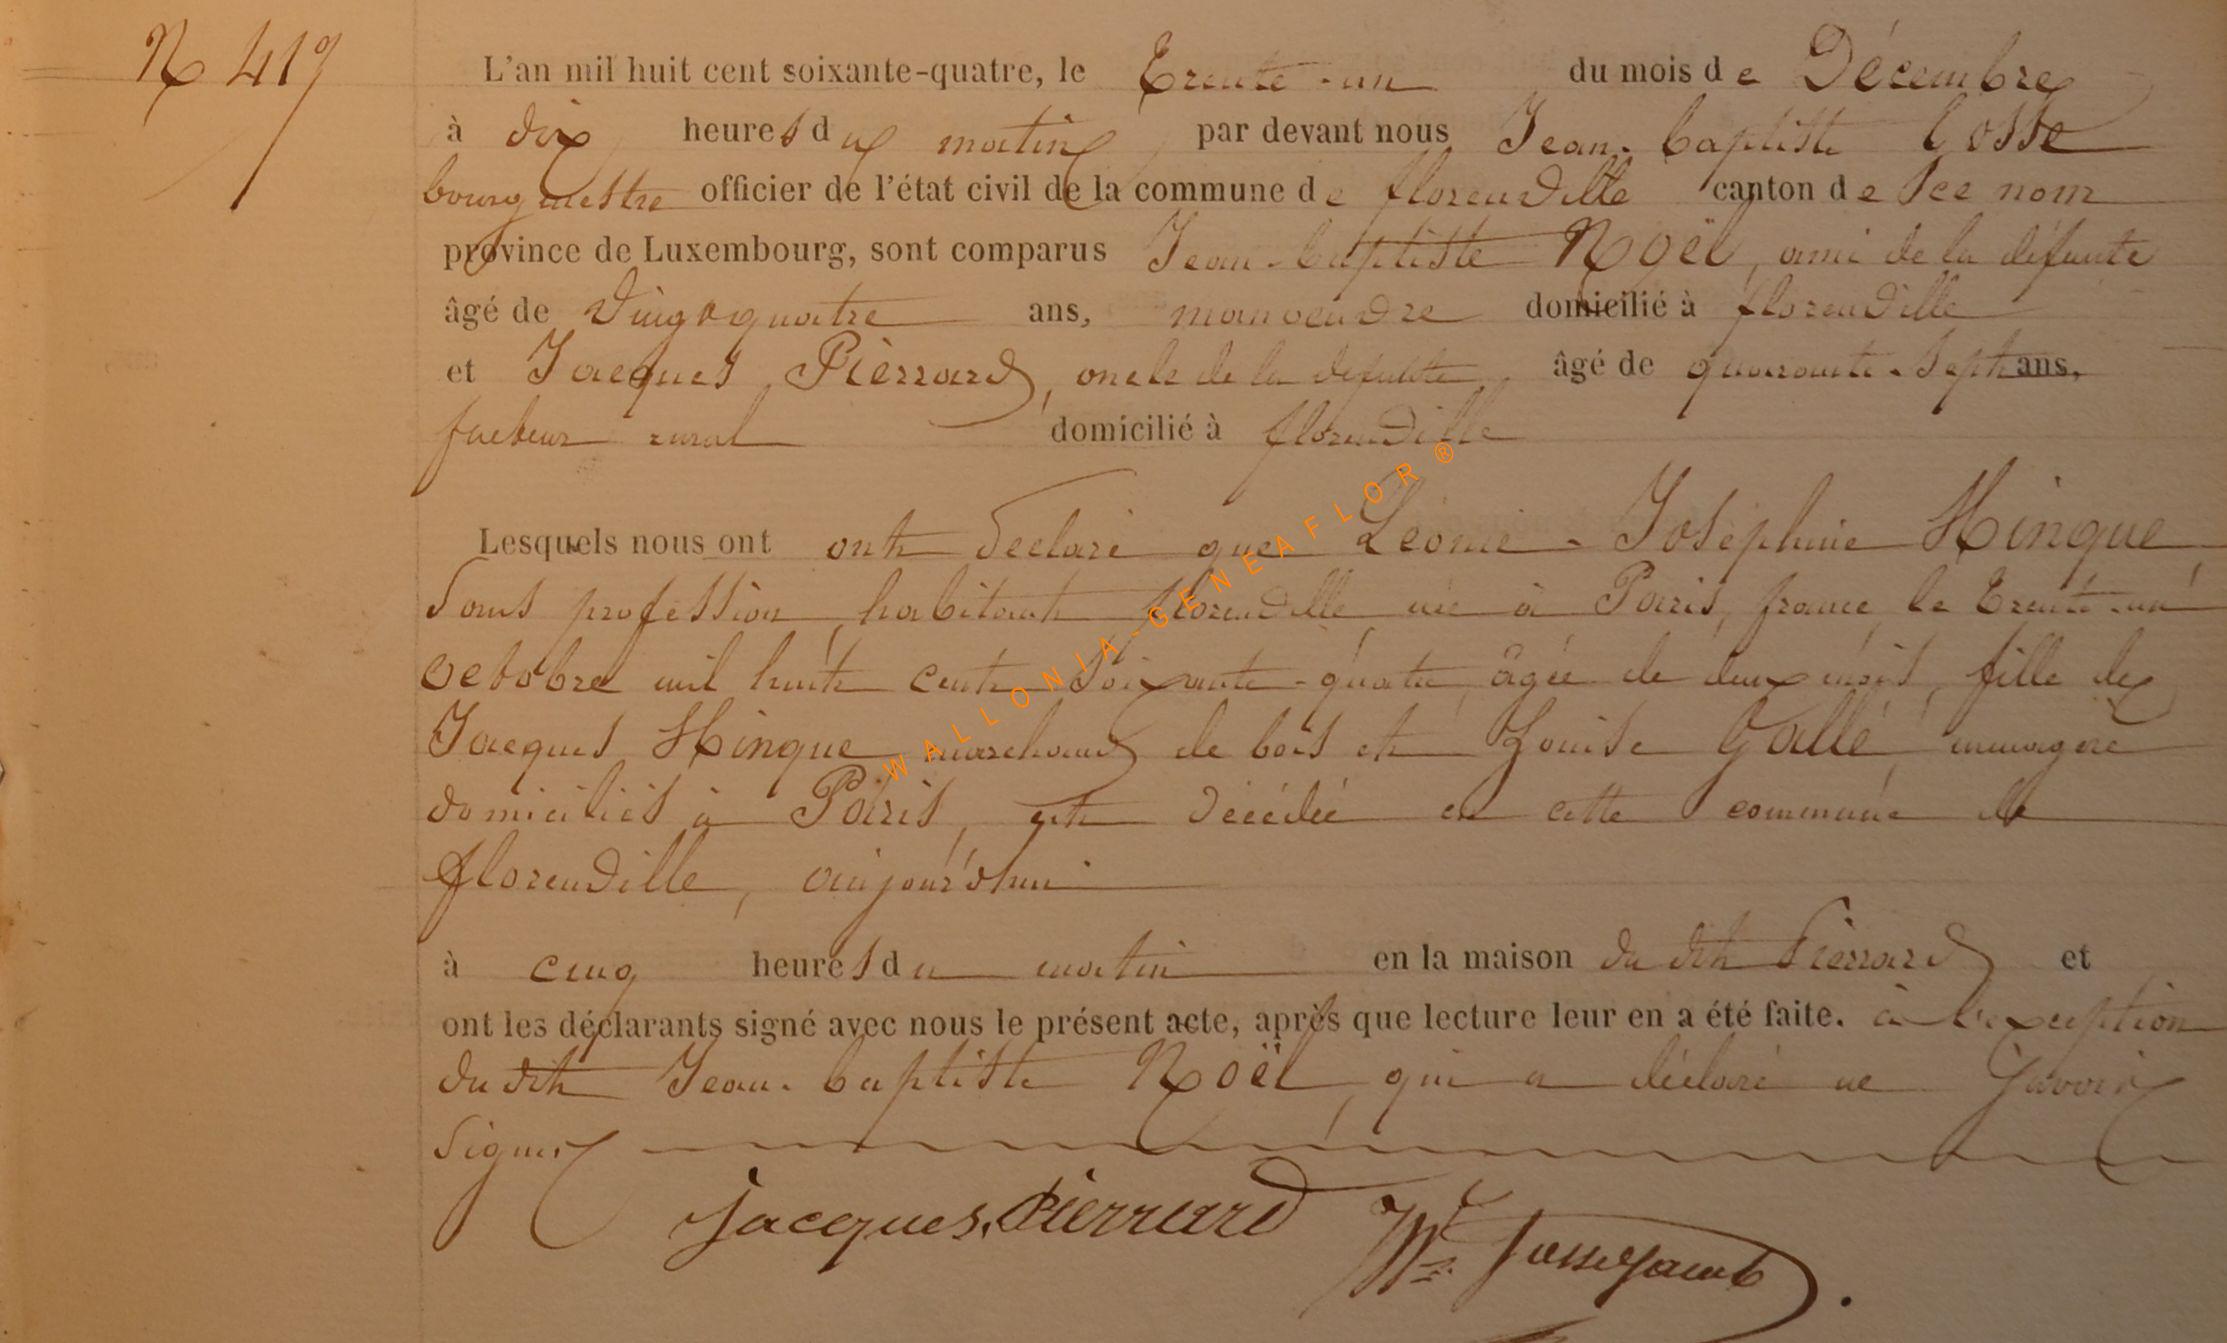 N 419
L'an mil huit cent soixante-quatre, le Trente-un du mois de Décembre
à dix heures du matin, par devant nous Jean-baptiste Gosse
bourgmestre officier de l'état civil de la commune de florenville canton de ce nom
province de Luxembourg, sont comparus Jean-baptiste Noël, ami de la défunte
âgé de vingt quatre ans, manoeuvre domicilié à florenville
et Jacques Pierrard, oncle de la défunte âgé de quarante-sept ans,
facteur rural domicilié à florenville
Lesquels nous ont ont déclaré que Léonie-Joséphine Hinque
sans profession, habitant florenville née à Paris, france, le trente-un
octobre mil huit cent soixante-quatre, âgée de deux mois, fille de
Jacques Hinque marchand de bois et Louise Gallé, menagère
domiciliés à Paris, est décédée en cette commune de
florenville, aujourd'hui
à cinq heures du matin en la maison du dit Pierrard et
ont les déclarants signé avec nous le présent acte, après que lecture leur en a été faite. à l'exception
du dit Jean-baptiste Noël, qui a déclaré ne savoir
signer
Jacques Pierrard
WALLONIA-GENEAFLOR ®